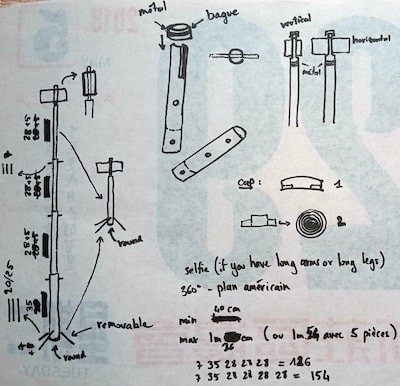 métal
bague
vertical
horizontal
métal
round
20/25
removable
round
Coop: 1
2
selfie (if you have long arms or long legs)
360° - plan américain
min 40 cm
max 1m cm (ou 1m54 avec 5 pièces)
26
7 35 28 28 28 = 126
7 35 28 28 28 28 = 154
2018
TUESDAY